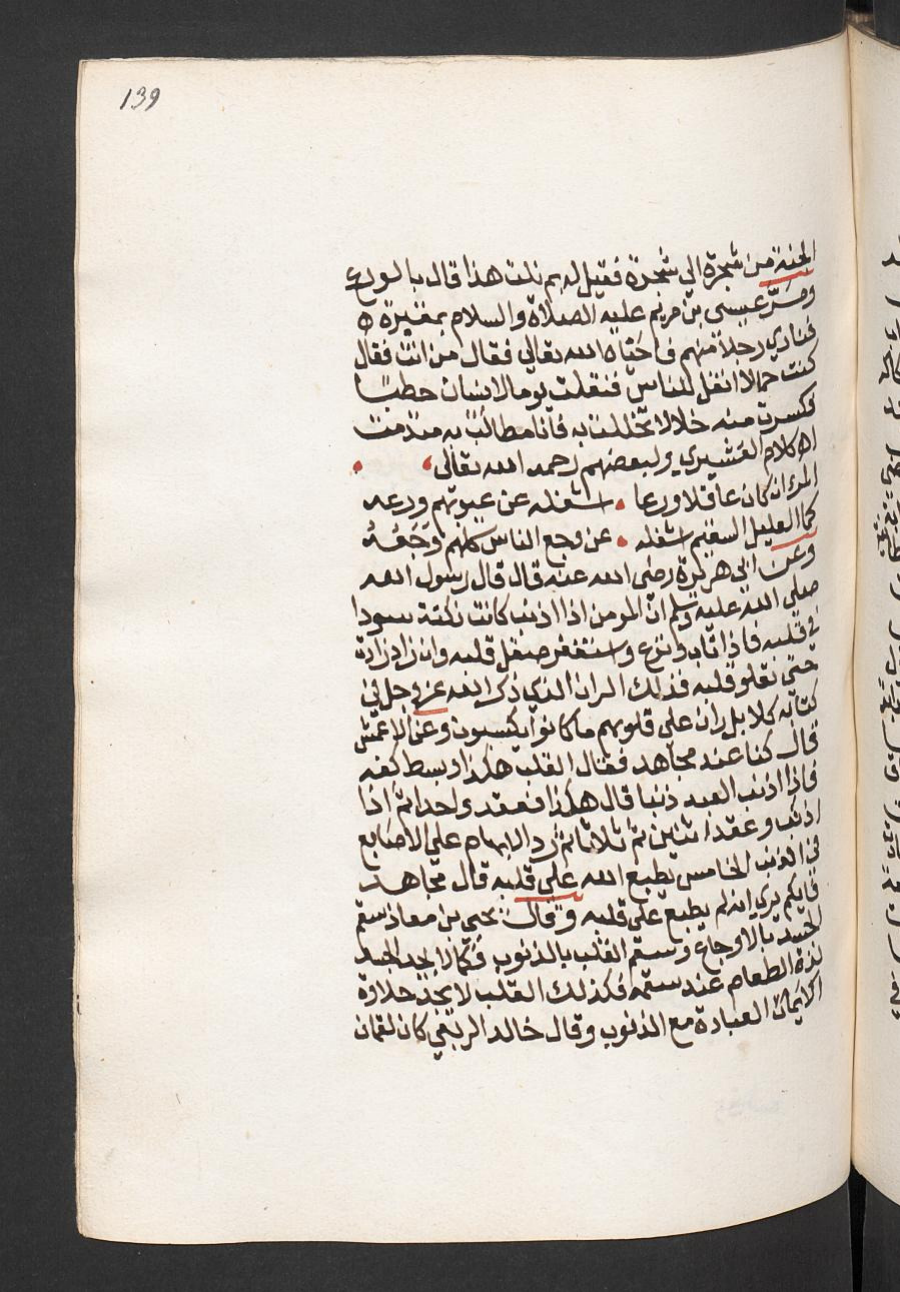 139
الجنة من شجرة الي شجرة فقيل له بم نلت هذا قال بالورع
ومرّ عيسى بن مريم عليه الصلاة والسلام بمقبرة
فنادي رجلا منهم فاحياه الله تعالي فقال من انت فقال
كنت حمالا انقل للناس فنقلت يوما لانسان حطبًا
فكسرت منه خلالا تخللت به فانا مطالب به منذ مت
اه كلام القشيري ولبعضهم رحمه الله تعالي
المرء ان كان عاقلا ورعا اشغله عن عيوبهم ورعه
كما العليل السقيم اشغله عن وجع الناس كلهم وَجَعُهُ
وعن ابي هريرة رضي الله عنه قال قال رسول الله
صلى الله عليه وسلم ان المومن اذا اذنب كانت نكتة سودا
في قلبه فاذا تاب ونزع واستغفر صقل قلبه وان زاد زادت
حتي تعلو قلبه فذلك الران الذي ذكر الله عز وجل في
كتابه كلا بل ران على قلوبهم ما كانوا يكسبون وعن الاعمش
قال كنا عند مجاهد فقال القلب هكذا وبسط كفه
فاذا اذنب العبد ذنبا قال هكذا فعقد واحدا ثم اذا
اذنب وعقد اثنين ثم ثلاثا ثم رد الابهام علي الاصابع
في الذنب الخامس يطبع الله علي قلبه قال مجاهد
فايكم يري انه لم يطبع علي قلبه وقال يحيى بن معاذ سقم
الجسد بالاوجاع وسقم القلب بالذنوب فكما لا يجد الجسد
لذة الطعام عند سقمه فكذلك القلب لا يجد حلاوة
العبادة مع الذنوب وقال خالد الربعي كان لقمان